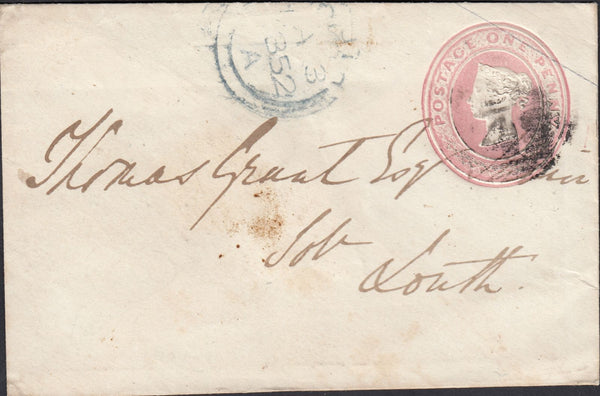 POSTAGE ONE PENNY
Thomas Grant Esq
Sol
Louth.